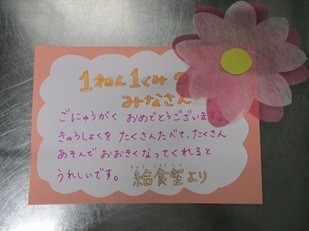 1ねん1くみの
みなさん
ごにゅうがく おめでとうございます
きゅうしょくを たくさんたべて、たくさん
あそんで おおきくなってくれると
うれしいです。 給食室より
きゅう しょく しつ